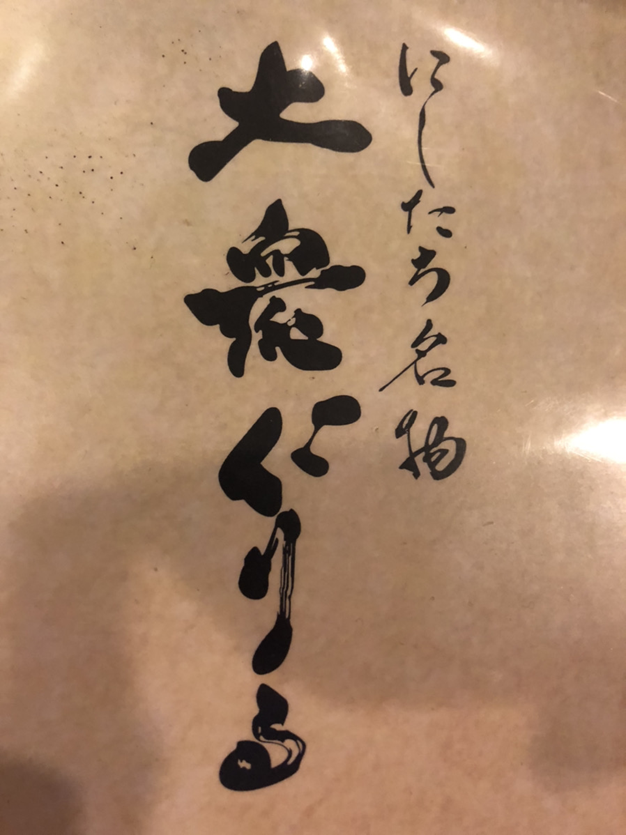 にしたち名物
大衆仁りる